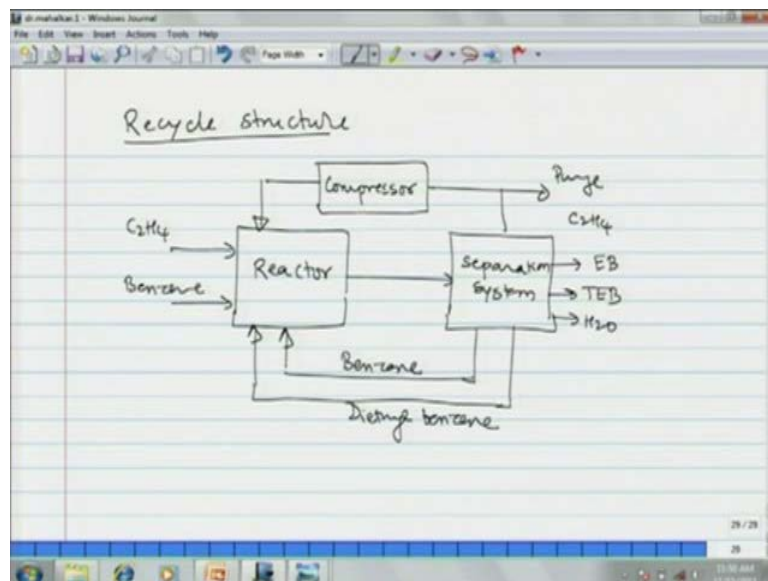 dr.mahalkar.1 - Windows Journal
File Edit View Insert Actions Tools Help
Page Width
Recycle structure
Compressor
Purge
C2H4
C2H4
Benzene
Reactor
Separation
System
EB
TEB
H2O
Benzene
Diethyl benzene
29 / 29
29
11:50 AM